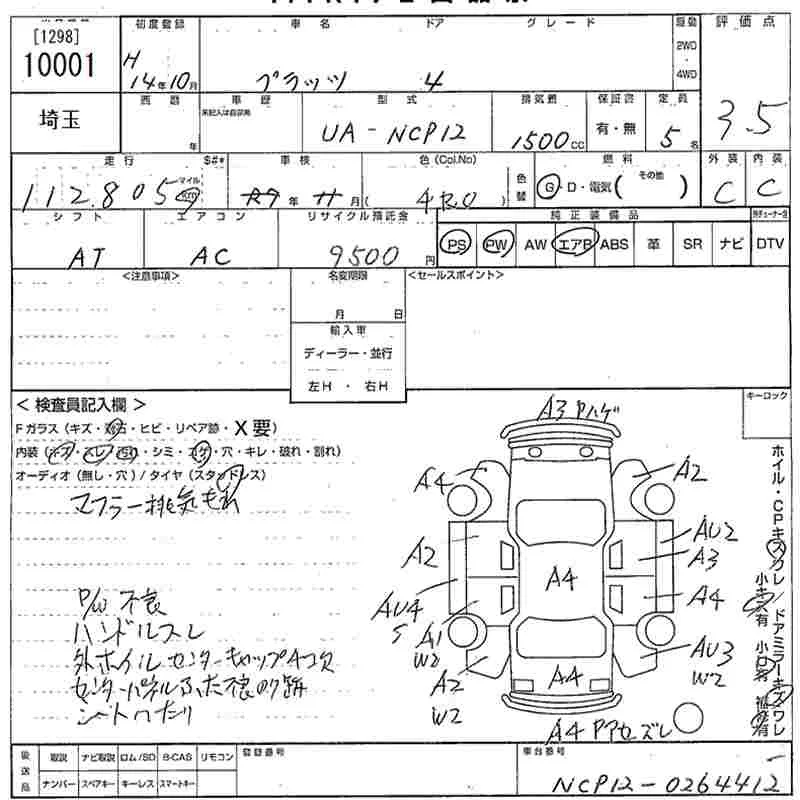 [1298]
10001
埼玉
初度登録
H
14年10月
車名
プラッツ
ドア
4
グレード
駆動
2WD
4WD
評価点
3.5
西暦
年
車歴
未記入は自家用
型式
UA-NCP12
排気量
1500cc
保証書
有・無
定員
5名
走行
S#*
112,805
マイル
Km
車検
R7年11月
色(Col.No)
4R0
色替
燃料
G・D・電気(その他)
外装
C
内装
C
シフト
AT
エアコン
AC
リサイクル預託金
9500円
純正装備品
PS PW AW エアB ABS 革 SR ナビ
DTV
<注意事項>
名変期限
月 日
輸入車
ディーラー・並行
左H・右H
<セールスポイント>
<検査員記入欄>
Fガラス(キズ・飛石・ヒビ・リペア跡・X要)
内装(キズ・スレ・汚れ・シミ・コゲ・穴・キレ・破れ・割れ)
オーディオ(無し・穴)/タイヤ(スタッドレス)
マフラー排気もれ
P/W不良
ハンドルスレ
外ホイルセンターキャップ4コ欠
センターパネルふた不良のり跡
シートへたり
キーロック
A3 Pハゲ
A4
A2
A2
AU2
A3
A4
A4
AU4
S
A1
W2
AU3
W2
A2
W2
A4
A4 PアセズレL
ホイル・CPキズワレ/ドアミラーキズワレ
小キズ有 小凹有 補修有
後送品
取説 ナビ取説 ロム/SD B-CAS リモコン
ナンバー スペアキー キーレス スマートキー
登録番号
車台番号
NCP12-0264412